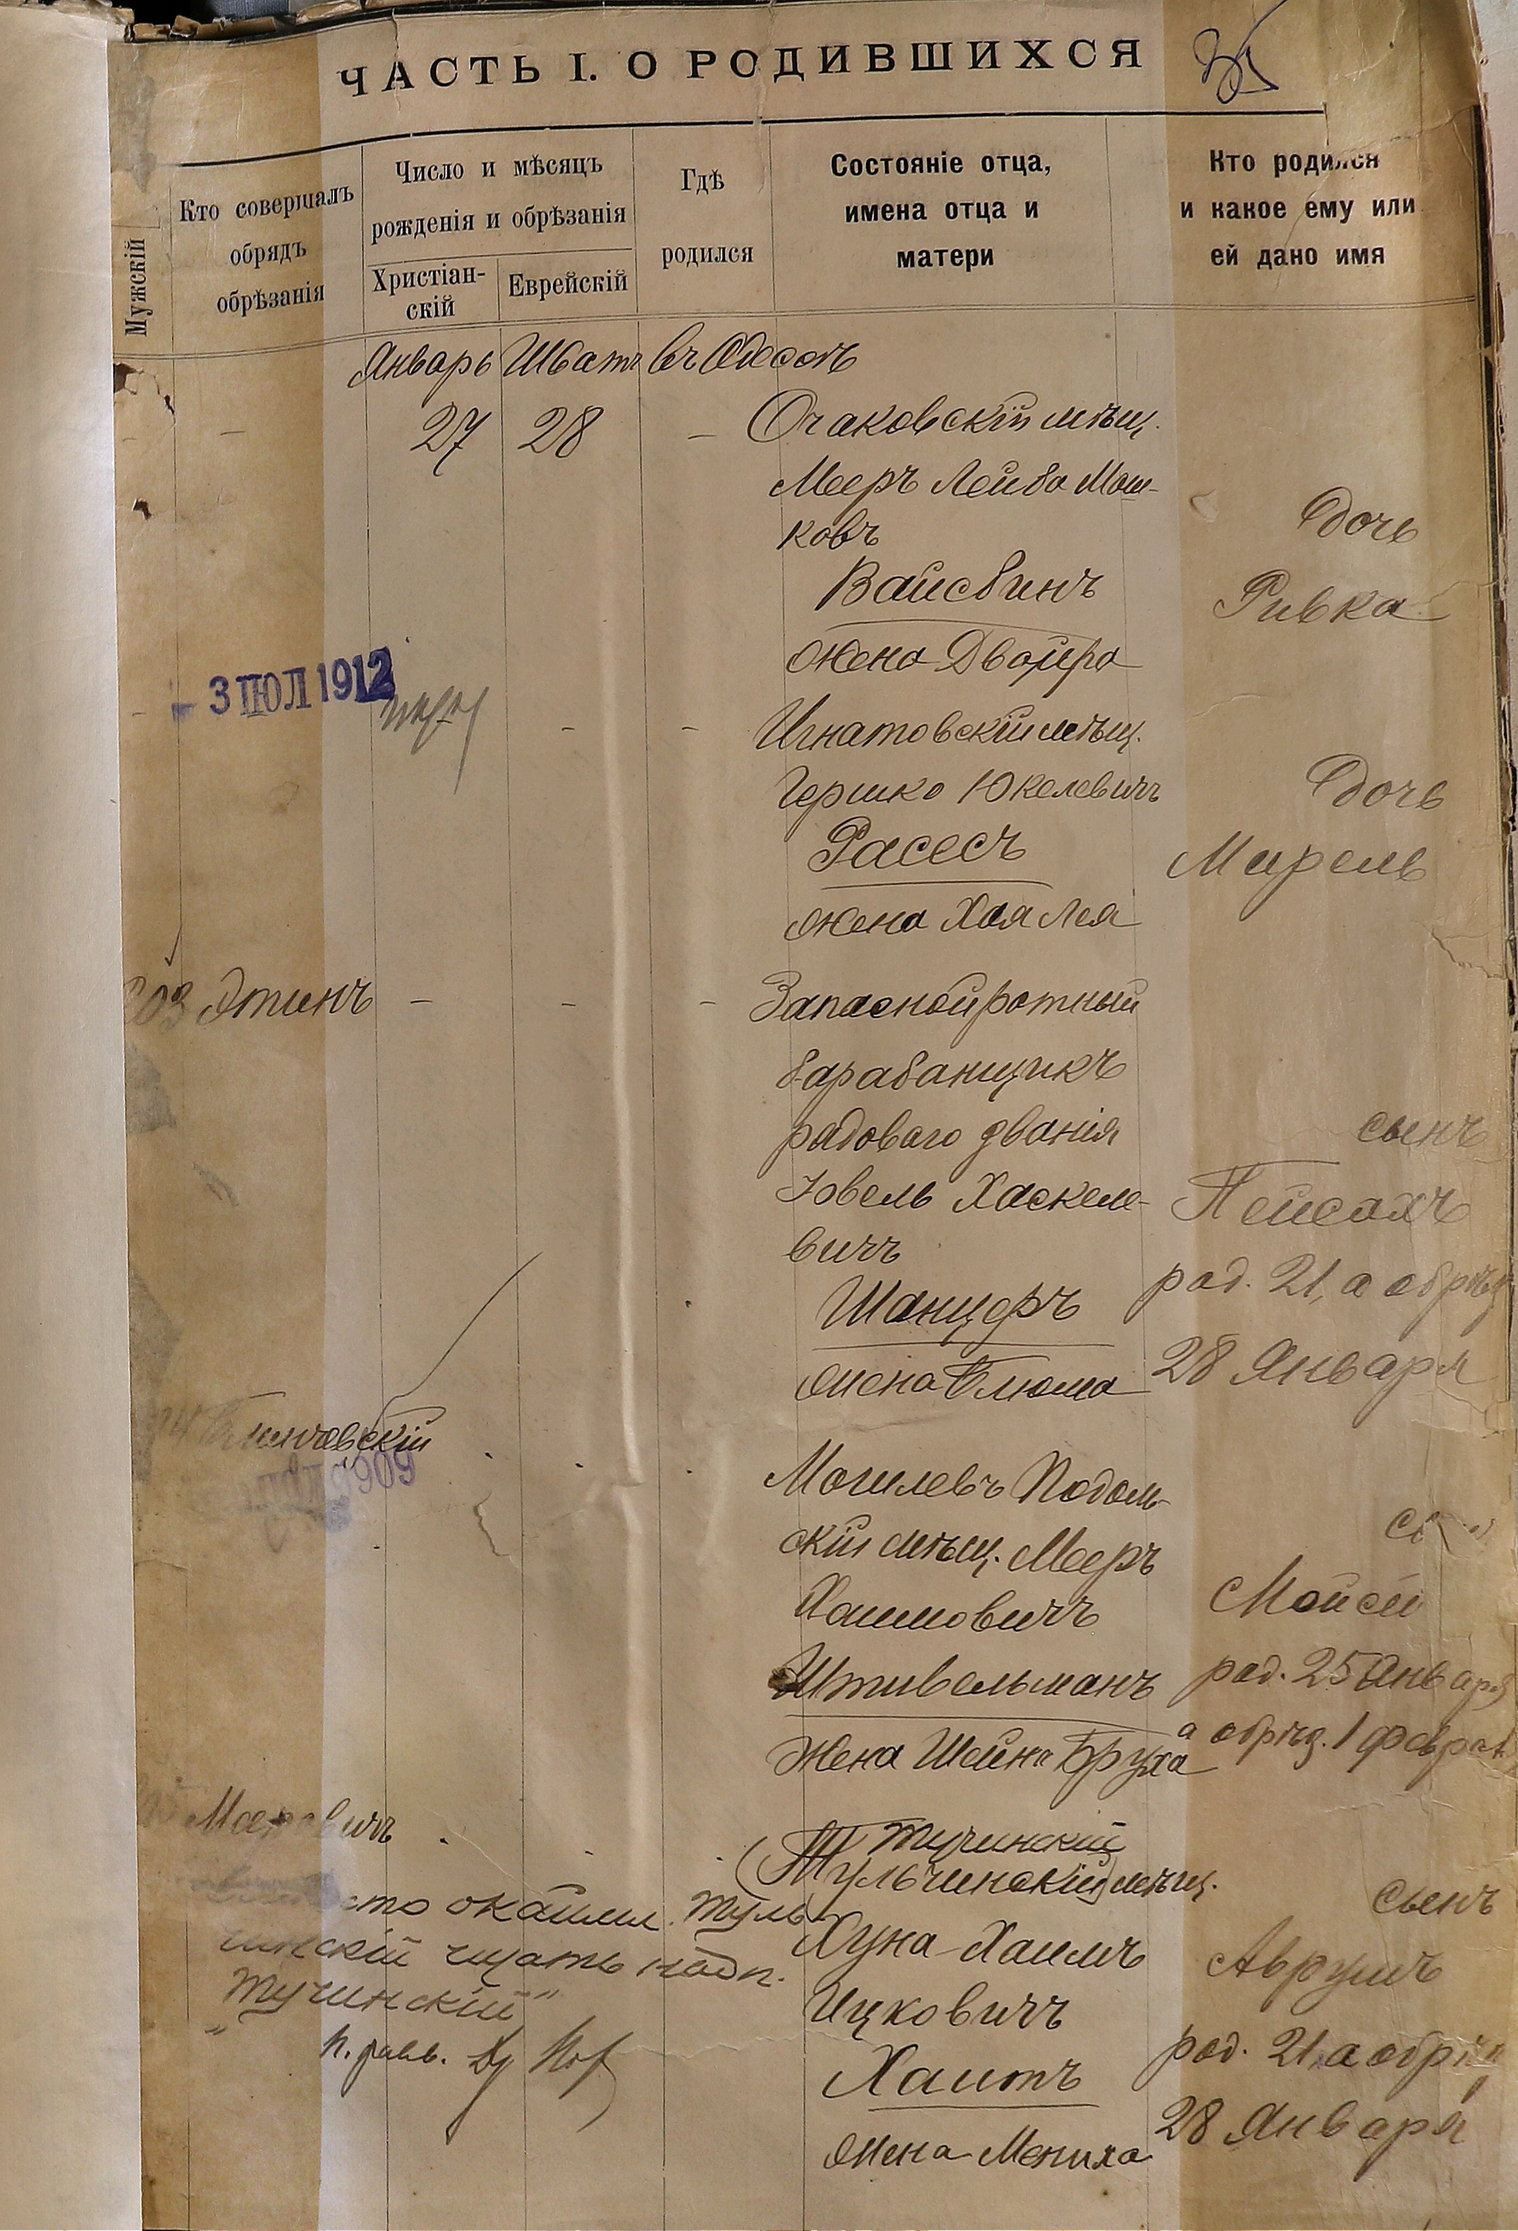 ЧАСТЬ I. О РОДИВШИХСЯ
35
Мужскій
Кто совершалъ
обрядъ
обрѣзанія
Число и мѣсяцъ
рожденія и обрѣзанія
Христіан-
скій
Еврейскій
Гдѣ
родился
Состояніе отца,
имена отца и
матери
Кто родился
и какое ему или
ей дано имя
Январь Шватъ въ Одессѣ
– 27 28 – Очаковскій мѣщ.
Мееръ Лейба Мош-
ковъ
Вайсбинъ
жена Двойра
дочь
Ривка
- 3 ІЮЛ 1912
– – Игнатовскій мѣщ.
Гершко Юкелевичъ
Расесъ
жена Хая Лея
дочь
Мирель
Этинъ – – – Запасной ротный
барабанщикъ
рядоваго званія
Іовель Хаскеле-
вичъ
Шанцеръ
жена Блюма
сынъ
Пейсахъ
род. 21, а обрѣз
28 Января
1909
Могилевъ Подоль-
скій мѣщ. Мееръ
Хаимовичъ
Штивельманъ
жена Шейна Бруха
Мойсей
род. 25 Января
а обрѣз. 1 Феврал
Тучинскій
(Тульчинскій) мѣщ.
Хуна Хаимъ
Ицковичъ
Хаитъ
жена Мениха
сынъ
Аврумъ
род. 21, а обрѣз
28 Января
Туль
чинскій читать надп.
"Тучинскій"